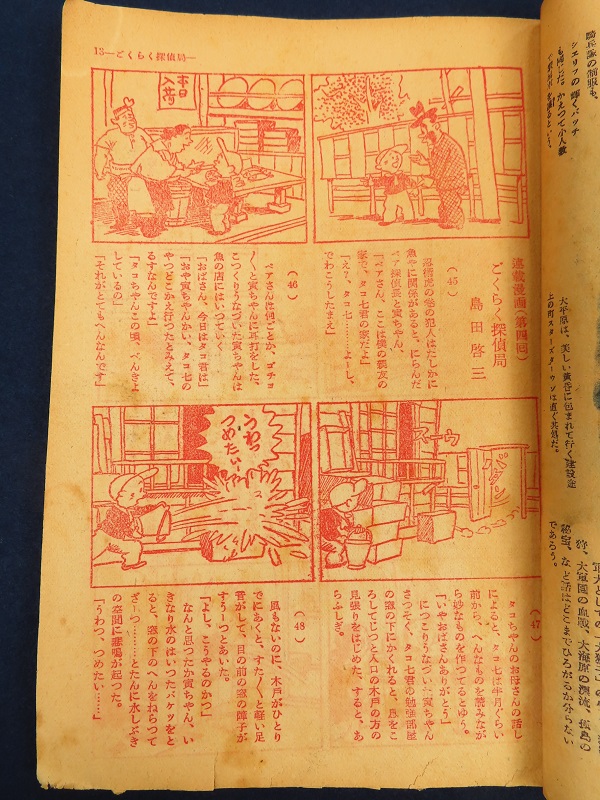 13—ごくらく探偵局—
連載漫画(第四回)
ごくらく探偵局
島田啓三
(45)
忍術虎の巻の犯人はたしかに
魚やに関係があると、にらんだ
ベア探偵長と寅ちゃん、
「ベアさん、ここは僕の親友の
家で、タコ七君の家だよ」
「え?、タコ七………よーし、
でわこうしたまえ」
本日
入荷
(46)
ベアさんは何ごとか、ゴチョ
ゴチョと寅ちゃんに耳打をした。
こっくりうなづいた寅ちゃんは
魚の店にはいっていく
「おばさん、今日はタコ君は」
「おや寅ちゃんかい、タコ七の
やつどこかえ行ったとみえて、
るすなんですよ」
「タコちゃんこの頃、べんきよ
しているの」
「それがとてもへんなんです」
スーウ
バターン
(47)
タコちゃんのお母さんの話し
によると、タコ七君は半月ぐらい
前から、へんなものを読みなが
ら妙なものを作ってるとゆう。
「いやおばさんありがとう」
にっこりうなづいた寅ちゃん
さっそく、タコ七君の勉強部屋
の窓の下にかくれると、息をこ
ろしてじっと入口の木戸の方の
見張りをはじめた、すると、あ
らふしぎ。
うわっ
つめたいー
(48)
風もないのに、木戸がひとり
でにあくと、すた〳〵と軽い足
音がして、目の前の窓の障子が
すうーっとあいた。
「よし、こうやるのかっ」
なんと思ったか寅ちゃん、い
きなり水のはいったバケツをと
ると、窓の下のへんをねらって
ざーっ………とたんに水しぶき
の空間に悲鳴が起った。
「うわっ、つめたい……」
騎兵隊の制服も、
シェリフの輝くバッチ
大平原は、美しい黄昏に包まれて行く建設途
上の町スターズタウンは直ぐ其処だ。
狩、大軍團の血戦、大海原の潮流、孤島の
秘宝、など話はどこまでひろがるか分らない
であろう。